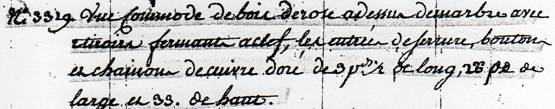 No. 3329 Une Commode de bois de rose a dessus de marbre avec
tiroirs fermant a clef, les entrées de serrure, boutons
et chainons de cuivre doré de 3 pds ½ de long, 18 po de
large et 33. de haut.